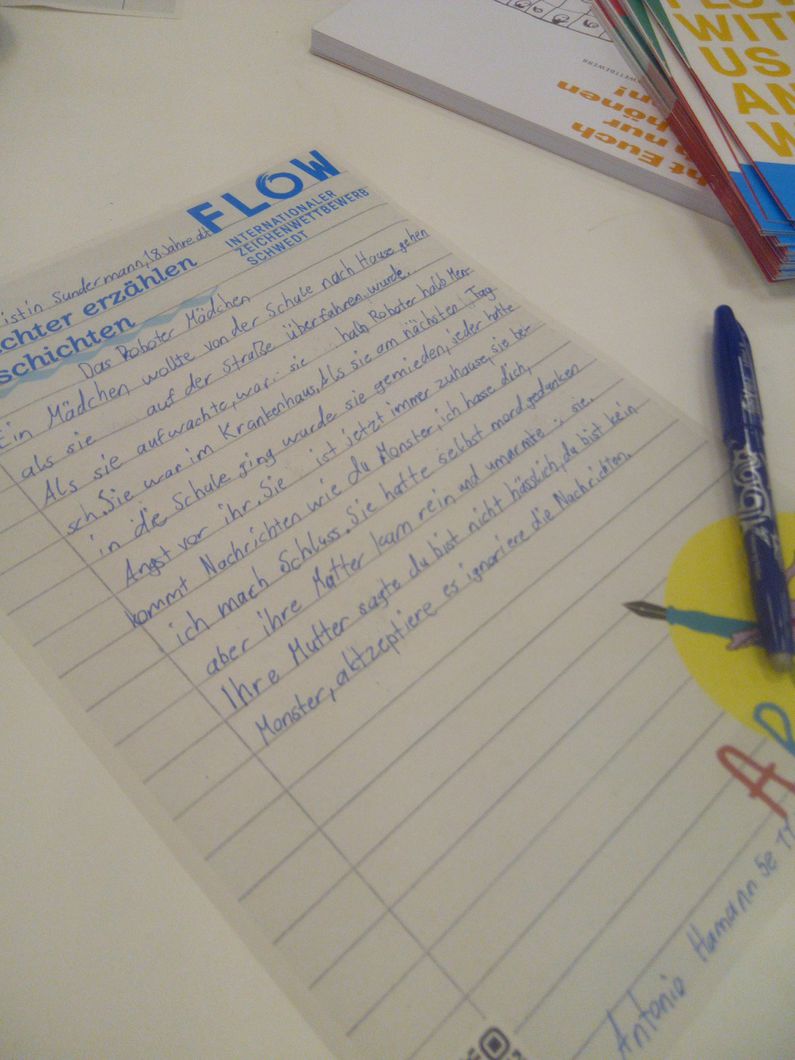 FLOW
INTERNATIONALER
ZEICHENWETTBEWERB
SCHWEDT
istin Sundermann, 18 Jahre alt
chter erzählen
schichten
Das Roboter Mädchen
Ein Mädchen wollte von der Schule nach Hause gehen
als sie auf der Straße überfahren wurde.
Als sie aufwachte, war sie halb Roboter halb Men-
sch. Sie war im Krankenhaus. Als sie am nächsten Tag
in die Schule ging wurde sie gemieden, jeder hatte
Angst vor ihr. Sie ist jetzt immer zuhause, sie be-
kommt Nachrichten wie du Monster, ich hasse dich,
ich mach Schluss. Sie hatte selbst mord gedanken
aber ihre Mutter kam rein und umarmte sie.
Ihre Mutter sagte du bist nicht hässlich, du bist kein
Monster, aktzeptiere es ignoriere die Nachrichten.
Antonia Hamann 5e 11
A
WITH
US
AN
W
WETTBEWERB
nt Euch
nur
hönen
n!